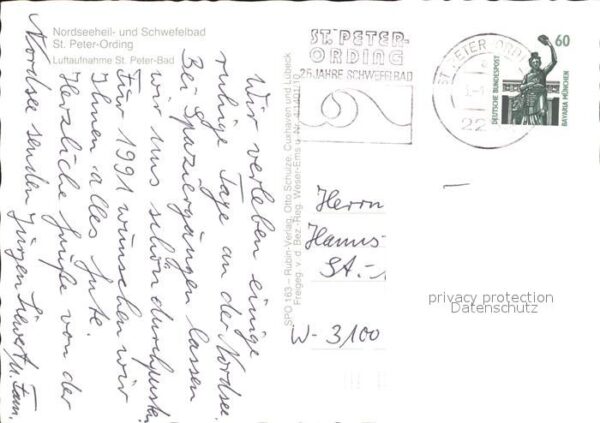 Nordseeheil- und Schwefelbad
St. Peter-Ording
Luftaufnahme St. Peter-Bad
Wir verleben einige
ruhige Tage an der Nordsee.
Bei Spaziergängen lassen
wir uns schön durchpusten.
Für 1991 wünschen wir
Ihnen alles Gute.
Herzliche Grüße von der
Nordsee senden Jürgen u. Fam.
SPO 163 – Rubin-Verlag, Otto Schulze, Cuxhaven und Lübeck
Freigeg. v. d. Bez.-Reg. Weser-Ems u. Nr.
ST. PETER-
ORDING
25 JAHRE SCHWEFELBAD
ST. PETER-ORD
22
60
DEUTSCHE BUNDESPOST
BAVARIA MÜNCHEN
Herrn
Hanns-
St.-
W-3100
privacy protection
Datenschutz